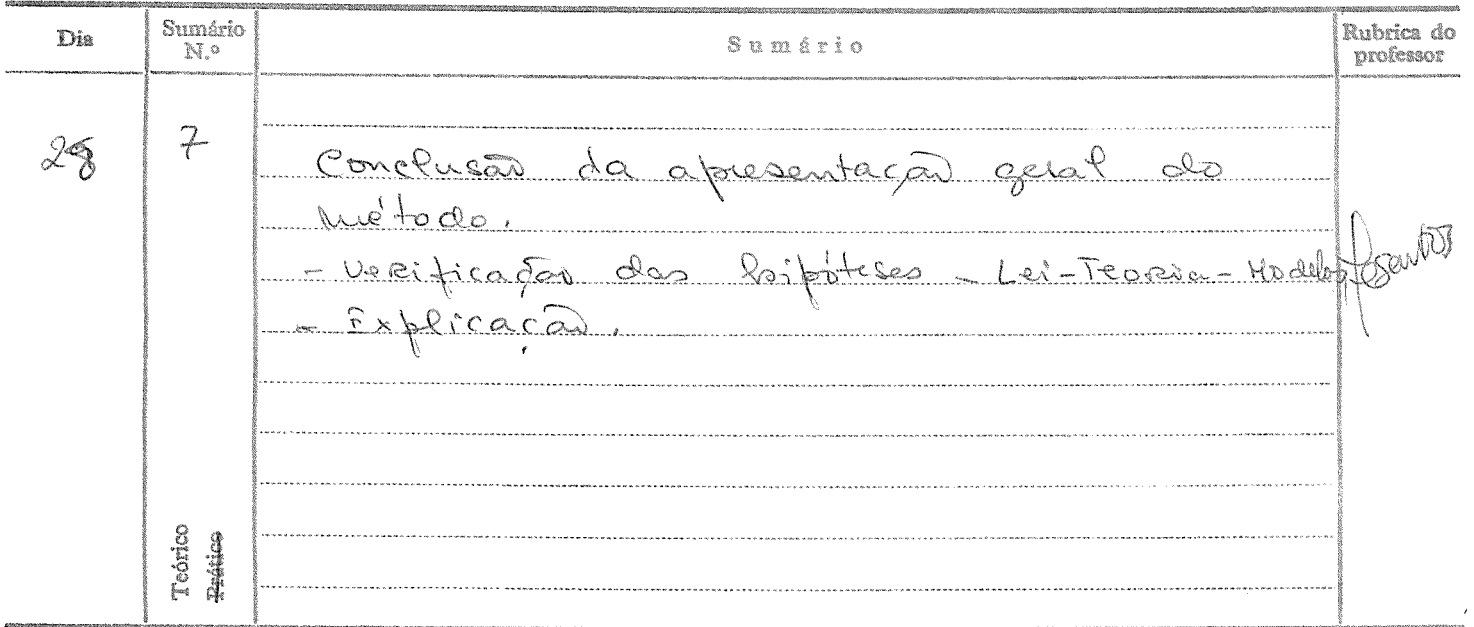 Dia
Sumário N.º
Sumário
Rubrica do professor
7
Conclusão da apresentação geral do
método.
- Verificação das hipóteses - Lei - Teoria - Modelo
- Explicação.
Teórico
Prático